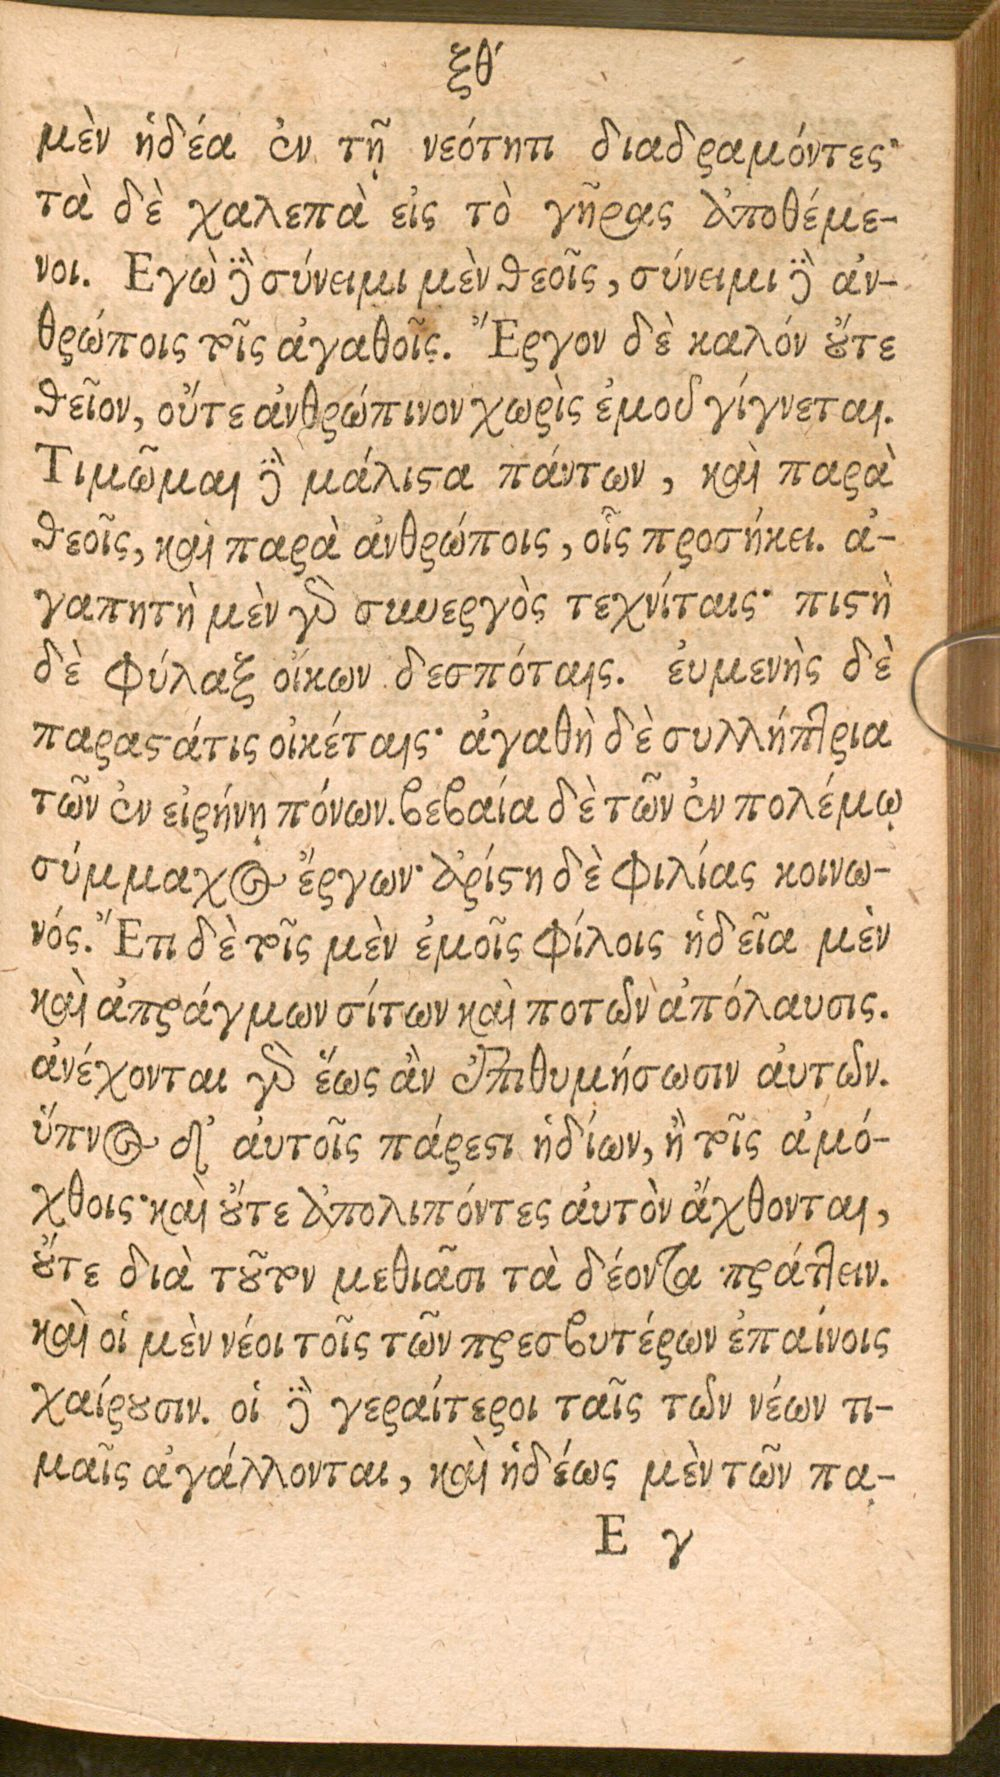 ξθ´
μὲν ἡδέα ἐν τῇ νεότητι διαδραμόντες·
τὰ δὲ χαλεπὰ εἰς τὸ γῆρας ἀποθέμε-
νοι. Εγὼ δὲ σύνειμι μὲν θεοῖς, σύνειμι δὲ ἀν-
θρώποις τοῖς ἀγαθοῖς. Ἔργον δὲ καλόν ȣ̓́τε
θεῖον, οὔτε ἀνθρώπινον χωρὶς ἐμοῦ γίγνεται.
Τιμῶμαι δὲ μάλιϛα πάντων, καὶ παρὰ
θεοῖς, καὶ παρὰ ἀνθρώποις, οἷς προσήκει. ἀ-
γαπητὴ μὲν γὰρ συνεργὸς τεχνίταις· πιϛὴ
δὲ φύλαξ οἴκων δεσπόταις. ἐυμενὴς δὲ
παραϛάτις οἰκέταις· ἀγαθὴ δὲ συλλήπτρια
τῶν ἐν εἰρήνῃ πόνων. βεβαία δὲ τῶν ἐν πολέμῳ
σύμμαχος ἔργων· ἀρίϛη δὲ φιλίας κοινω-
νός. Ἔτι δὲ τοῖς μὲν ἐμοῖς φίλοις ἡδεῖα μὲν
καὶ ἀπράγμων σίτων καὶ ποτῶν ἀπόλαυσις.
ἀνέχονται γὰρ ἕως ἂν ἐπιθυμήσωσιν ἀυτῶν.
ὕπνος δ᾽ ἀυτοῖς πάρεϛι ἡδίων, ἢ τοῖς ἀμό-
χθοις· καὶ ȣ̓́τε ἀπολιπόντες ἀυτὸν ἄχθονται,
ȣ̓́τε διὰ τȣ͂τον μεθιᾶσι τὰ δέοντα πράττειν.
καὶ οἱ μὲν νέοι τοῖς τῶν πρεσβυτέρων ἐπαίνοις
χαίρȣσιν. οἱ δὲ γεραίτεροι ταῖς τῶν νέων τι-
μαῖς ἀγάλλονται, καὶ ἡδέως μὲν τῶν πα-
Ε γ